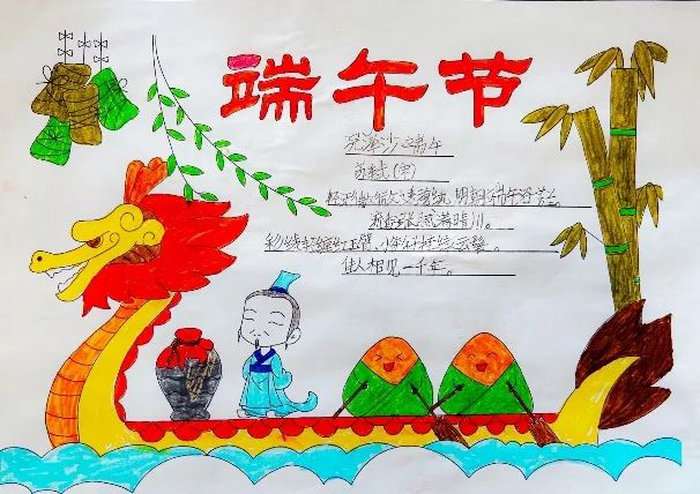 端午节
浣溪沙端午
苏轼(宋)
轻汗微微透碧纨,明朝端午浴芳兰。
流香涨腻满晴川。
彩线轻缠红玉臂,小符斜挂绿云鬟。
佳人相见一千年。